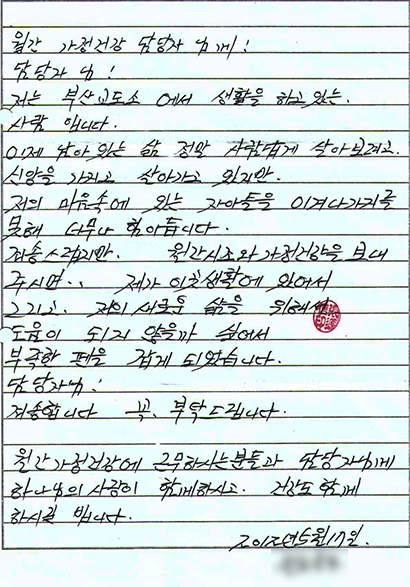 월간 가정건강 담당자 님께!
담당자 님!
저는 부산교도소 에서 생활을 하고 있는.
사람 입니다.
이제 남아 있는 삶 정말 사람답게 살아보려고.
신앙을 가지고 살아가고 있지만.
저의 마음속에 있는 자아들을 이겨나가지를
못해 너무나 힘이듭니다.
죄송스럽지만. 월간시조와 가정건강을 보내
주시면.. 제가 이곳생활에 있어서
그리고. 저의 새로운 삶을 위해서
도움이 되지 않을까 싶어서
부족한 펜을 잡게 되었습니다.
담당자님!
죄송합니다 꼭. 부탁드립니다.
월간가정건강에 근무하시는분들과 담당자님께
하나님의 사랑이 함께하시고. 건강도 함께
하시길 빕니다.
2012년5월17일.